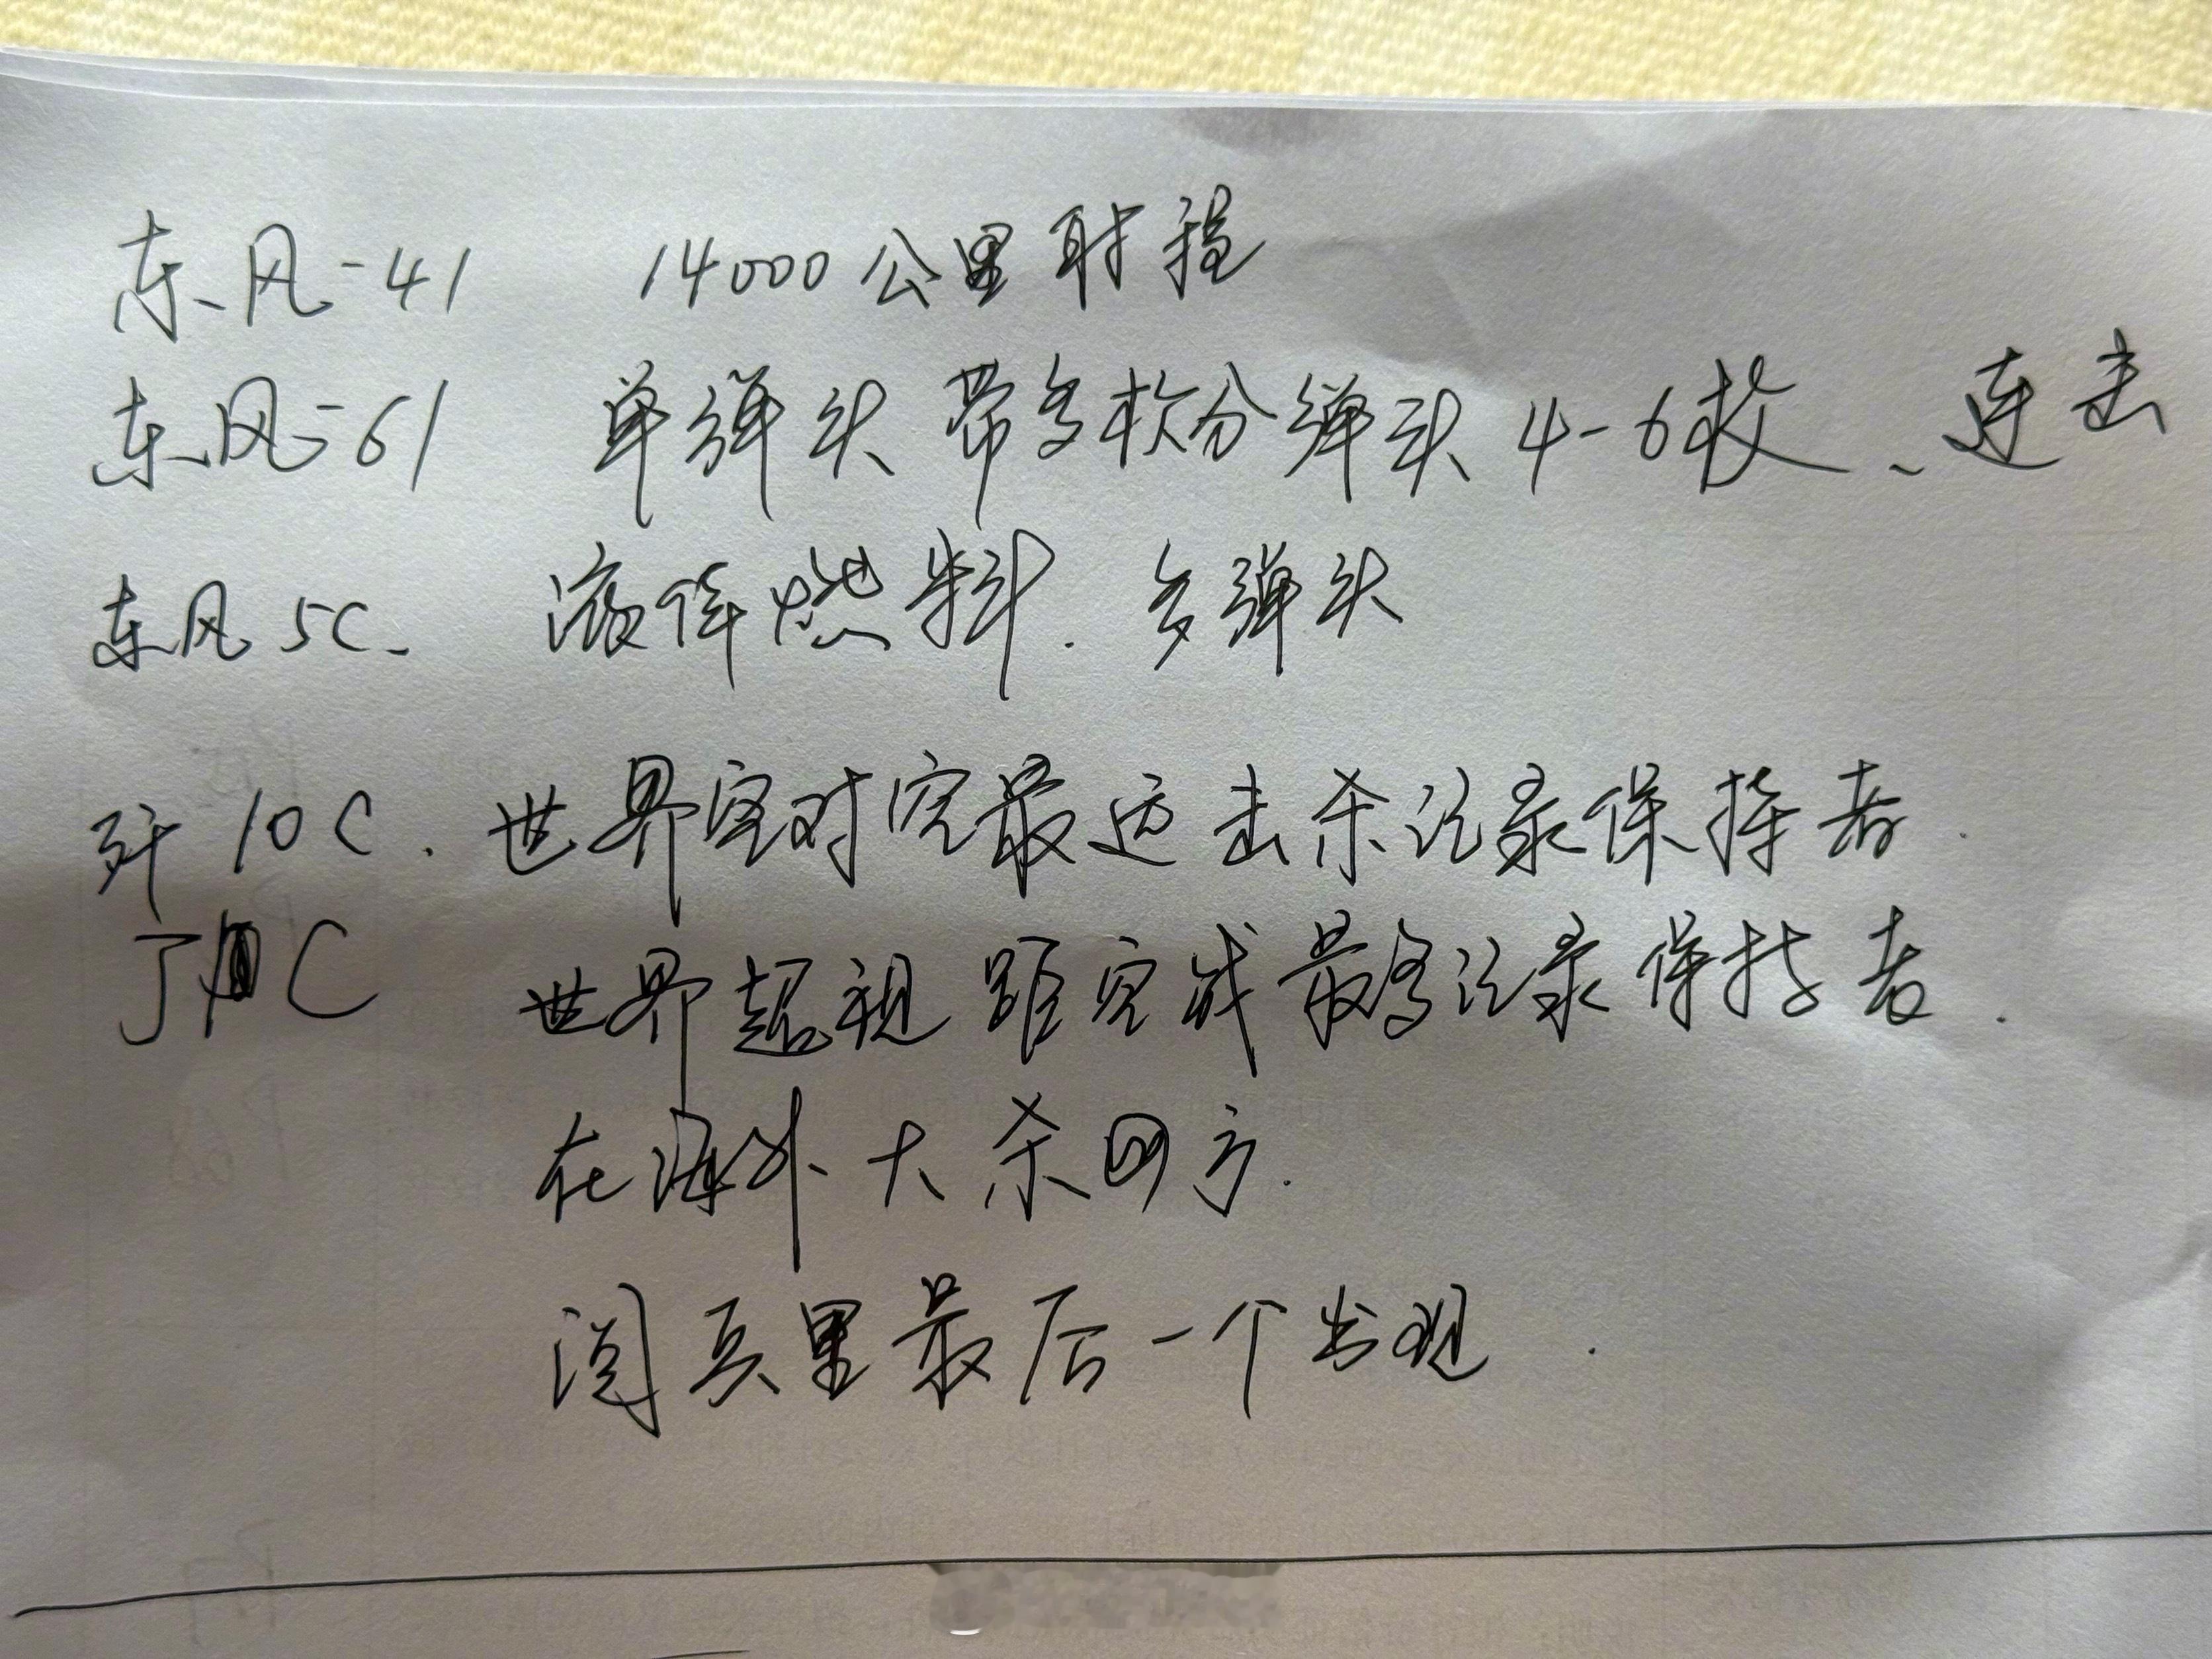 东风-41 14000公里射程
东风-61 单弹头带多枚分弹头4-6枚、连击
东风5C. 液体燃料.多弹头
歼10C.世界空对空最远击杀记录保持者.
J10C 世界超视距空战最多记录保持者.
在海外大杀四方.
阅兵里最后一个出现.